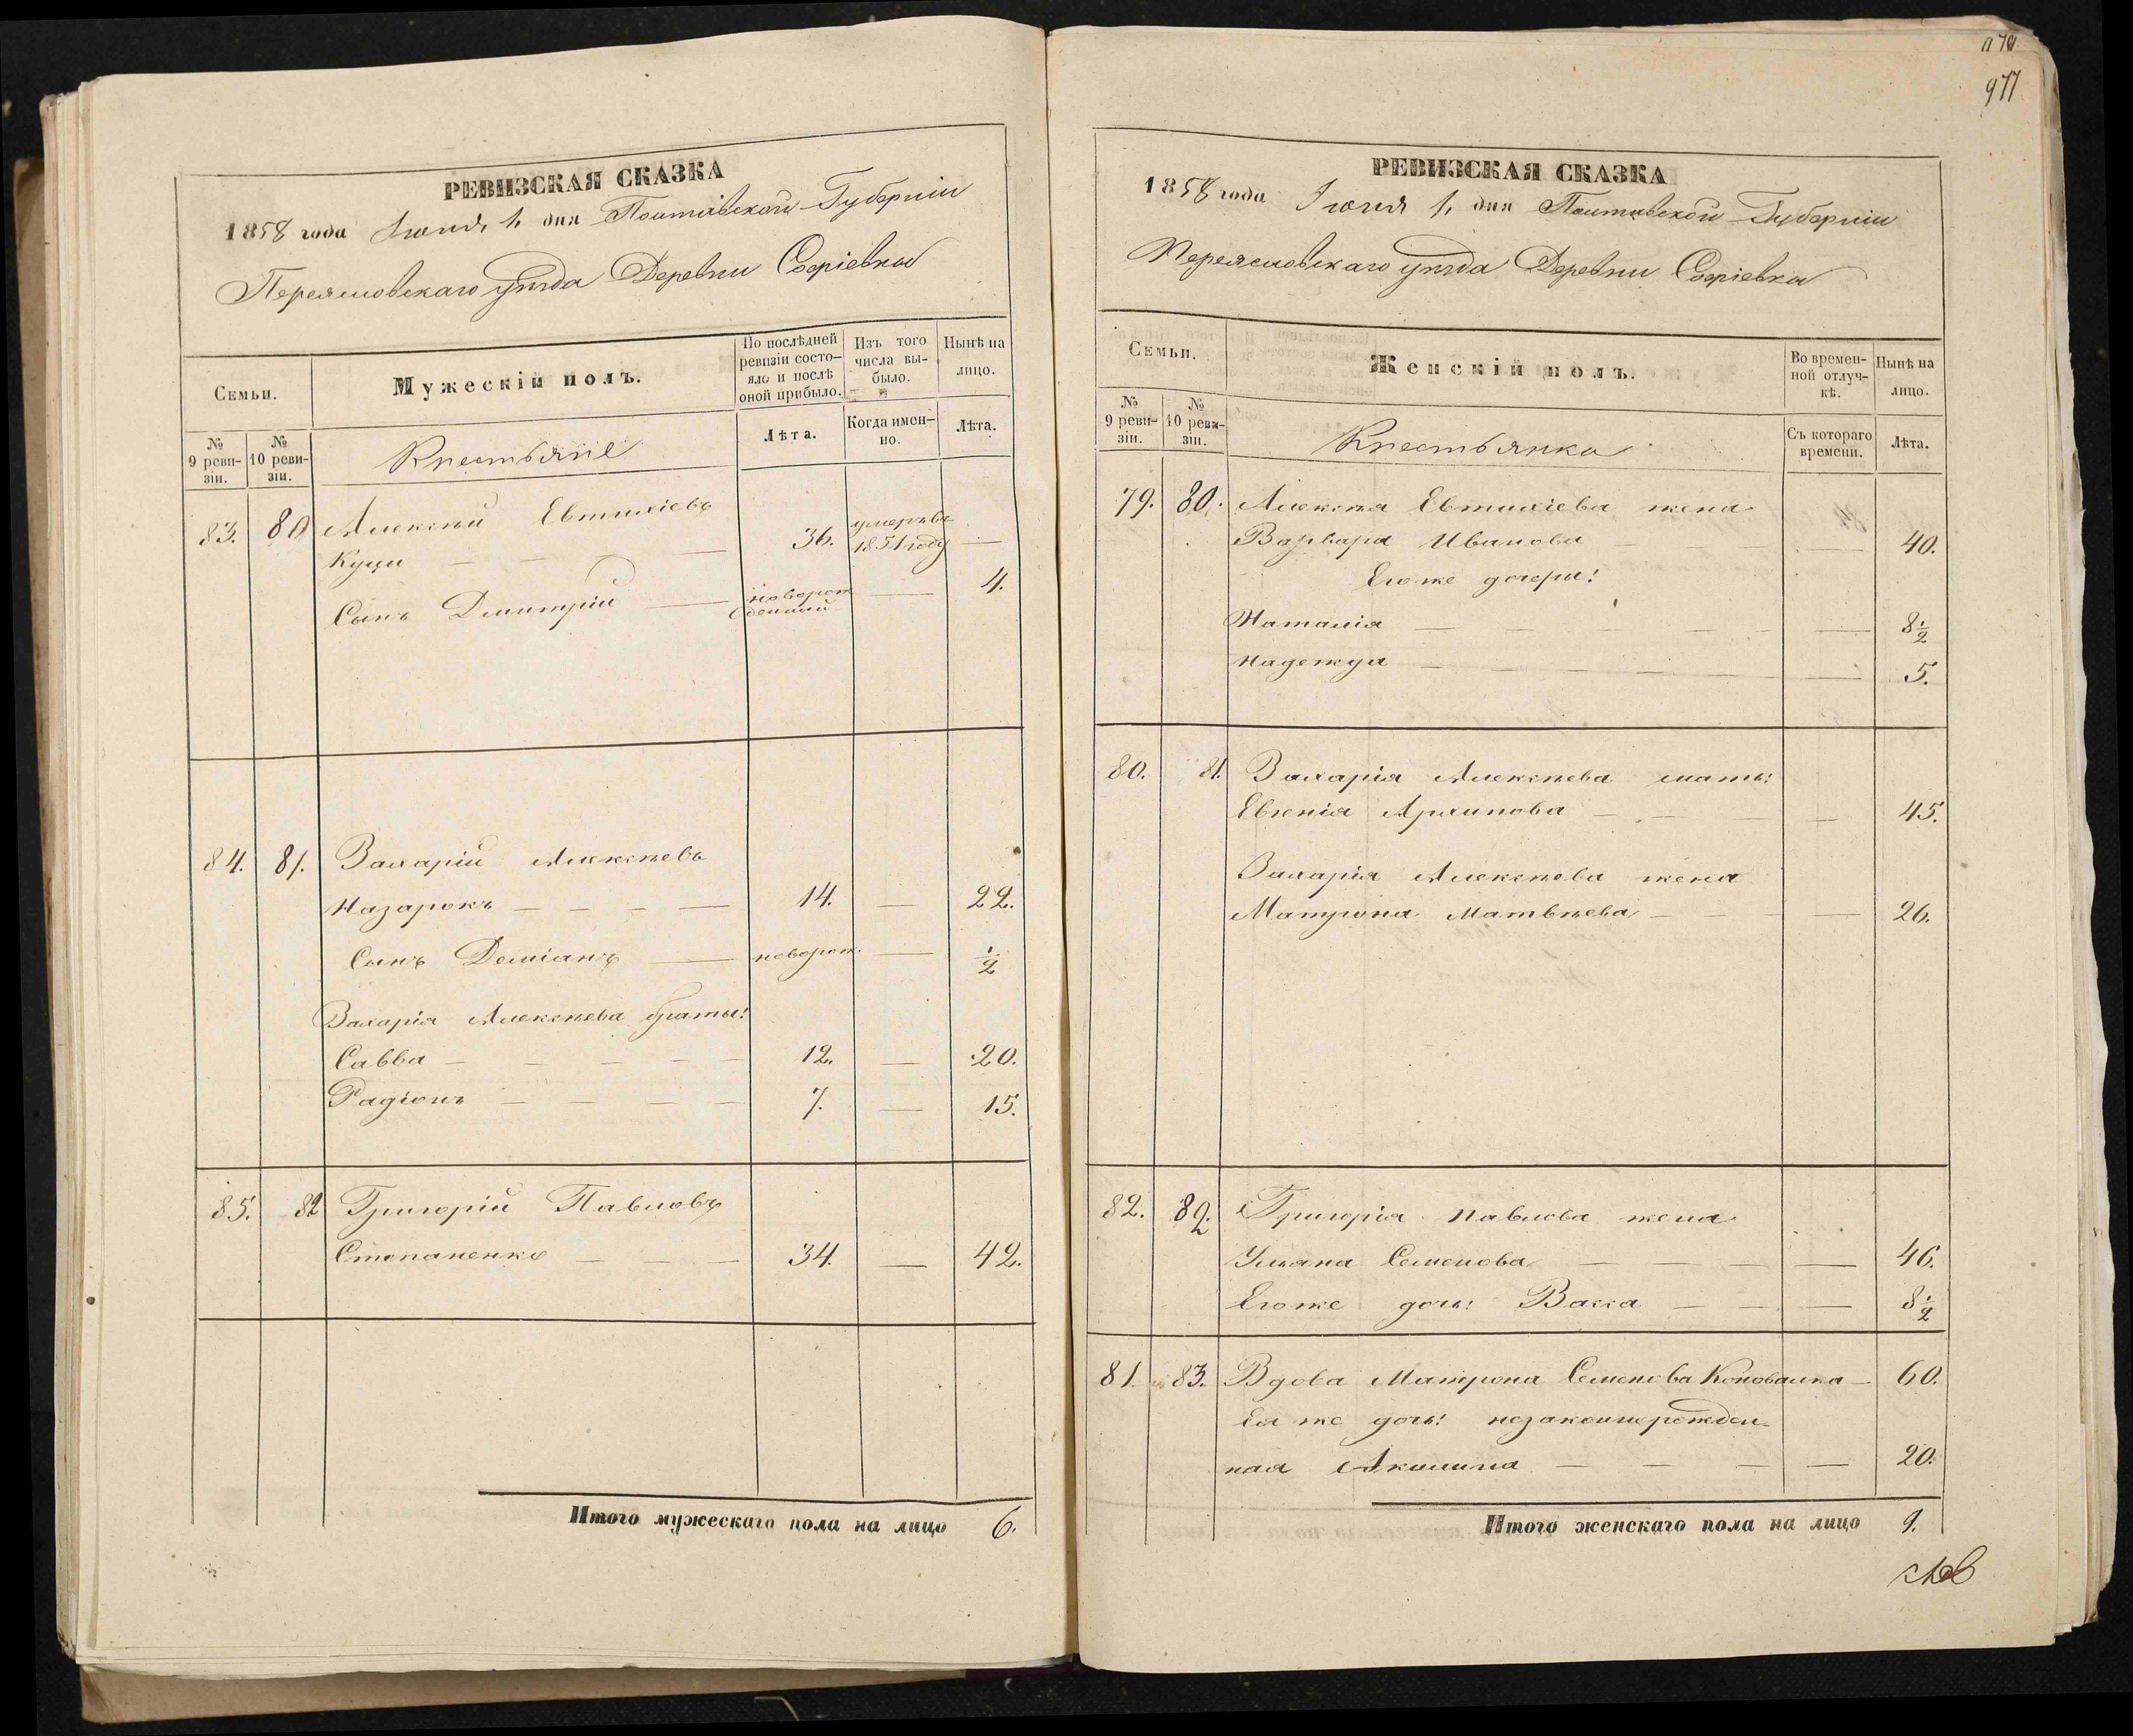 РЕВИЗСКАЯ СКАЗКА
1858 года Іюня 1, дня Полтавской Губерніи
Переяславскаго уѣзда Деревни Софіевки
Семьи.
Мужескій полъ.
По послѣдней ревизіи состо-
яло и послѣ оной прибыло.
Изъ того числа вы-
было.
Нынѣ на лицо.
№ 9 реви-
зіи.
№ 10 реви-
зіи.
Крестьяне
Лѣта.
Когда имен-
но.
Лѣта.
83. 80 Алексѣй Евтихіевъ
Куци — — — 36. умеръ въ 1851 году —
Сынъ Дмитрій — новорож
денный — 4.
84. 81. Захарій Алексѣевъ
Назарокъ — — — — 14. — 22.
Сынъ Деміанъ — новорож. — ½
Захарія Алексѣева браты:
Савва — — — — — 12. — 20.
Радіонъ — — — — 7. — 15.
85. 82 Григорій Павловъ
Степаненко — — — 34. — 42.
Итого мужескаго пола на лицо 6.
977
РЕВИЗСКАЯ СКАЗКА
1858 года Іюня 1, дня Полтавской Губерніи
Переяславскаго уѣзда Деревни Софіевки
Семьи.
Женскій полъ.
Во времен-
ной отлуч-
кѣ.
Нынѣ на лицо.
№ 9 реви-
зіи.
№ 10 реви-
зіи.
Крестьянки
Съ котораго времени.
Лѣта.
79. 80. Алексѣя Евтихіева жена
Варвара Иванова — 40.
Его же дочери:
Наталія — — — — — — 8½
Надежда — — — — — — 5.
80. 81. Захарія Алексѣева мать:
Евгенія Архипова — — — — 45.
Захарія Алексѣева жена
Матрона Матвѣева — — — — 26.
82. 82. Григорія Павлова жена
Ульяна Семенова — — — — — 46.
Его же дочь: Васса — — — 8½
81. 83. Вдова Матрона Семенова Коновалка — 60.
Ея же дочь: незаконнорожден-
ная Акилина — — — — 20.
Итого женскаго пола на лицо 9.